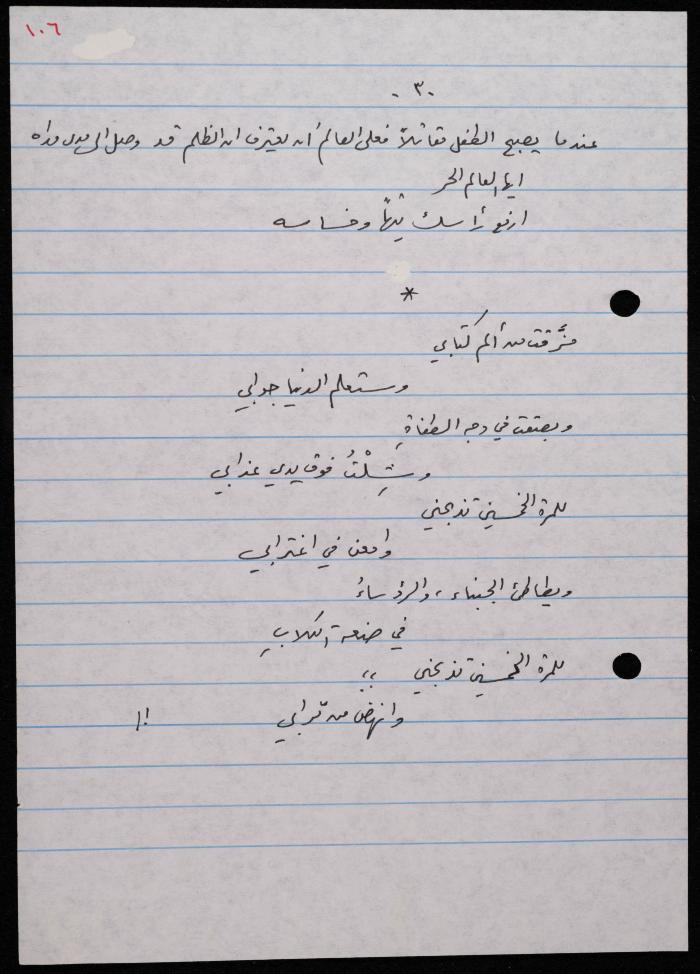 ١٠٦
٠٣٠
عندما يصبح الطفل مقاتلاً فعلى العالم أن يعترف ان الظلم قد وصل الى مداه
ايها العالم الحر
ارفع رأسك تيهاً وخساسه
*
مزَّقت من ألم كتابي
وستعلم الدنيا جوابي
وبصقت في وجه الطغاةِ
وشِلْتُ فوق يدي عذابي
للمرة الخمسين تذبحني
وامعن في اغترابي
ويطاطئ الجبناء، والرؤساءُ
في ضعة الكلابِ
للمرة الخمسين تذبحني ،،
وانهض من ترابي !!